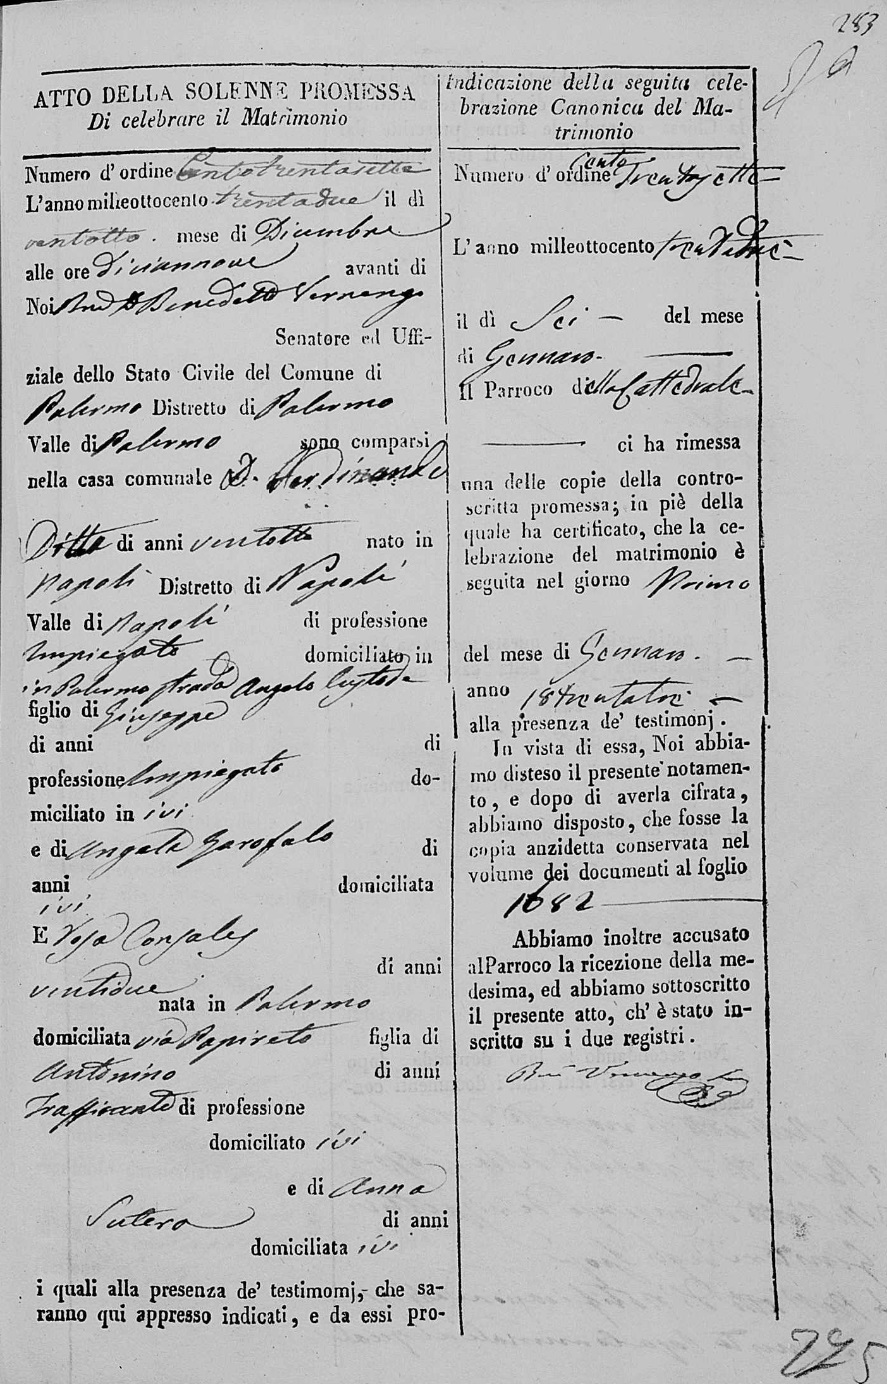 283
ATTO DELLA SOLENNE PROMESSA
Di celebrare il Matrimonio
Numero d'ordine Centotrentasette
L'anno milleottocento trentadue il dì
ventotto. mese di Dicembre
alle ore diciannove avanti di
Noi Benedetto Vernengo
Senatore ed Uffi-
ziale dello Stato Civile del Comune di
Palermo Distretto di Palermo
Valle di Palermo sono comparsi
nella casa comunale D. Ferdinando
Ditto di anni ventotto nato in
Napoli Distretto di Napoli
Valle di Napoli di professione
Impiegato domiciliato in
in Palermo strada Angelo Custode
figlio di Giuseppe
di anni di
professione Impiegato do-
miciliato in ivi
e di Angela Garofalo di
anni domiciliata
ivi
E Rosa Consales
di anni
ventidue
nata in Palermo
domiciliata via Papireto figlia di
Antonino di anni
Trafficante di professione
domiciliato ivi
e di Anna
Sutera di anni
domiciliata ivi
i quali alla presenza de' testimomj, che sa-
ranno qui appresso indicati, e da essi pro-
Indicazione della seguita cele-
brazione Canonica del Ma-
trimonio
Numero d'ordine Cento Trentasette
L'anno milleottocento trentatre
il dì Sei del mese
di Gennaro
Il Parroco della Cattedrale
ci ha rimessa
una delle copie della contro-
scritta promessa; in piè della
quale ha certificato, che la ce-
lebrazione del matrimonio è
seguita nel giorno Primo
del mese di Gennaro.
anno 18trentatre
alla presenza de' testimonj.
In vista di essa, Noi abbia-
mo disteso il presente notamen-
to, e dopo di averla cifrata,
abbiamo disposto, che fosse la
copia anzidetta conservata nel
volume dei documenti al foglio
1682
Abbiamo inoltre accusato
al Parroco la ricezione della me-
desima, ed abbiamo sottoscritto
il presente atto, ch'è stato in-
scritto su i due registri.
Vernengo